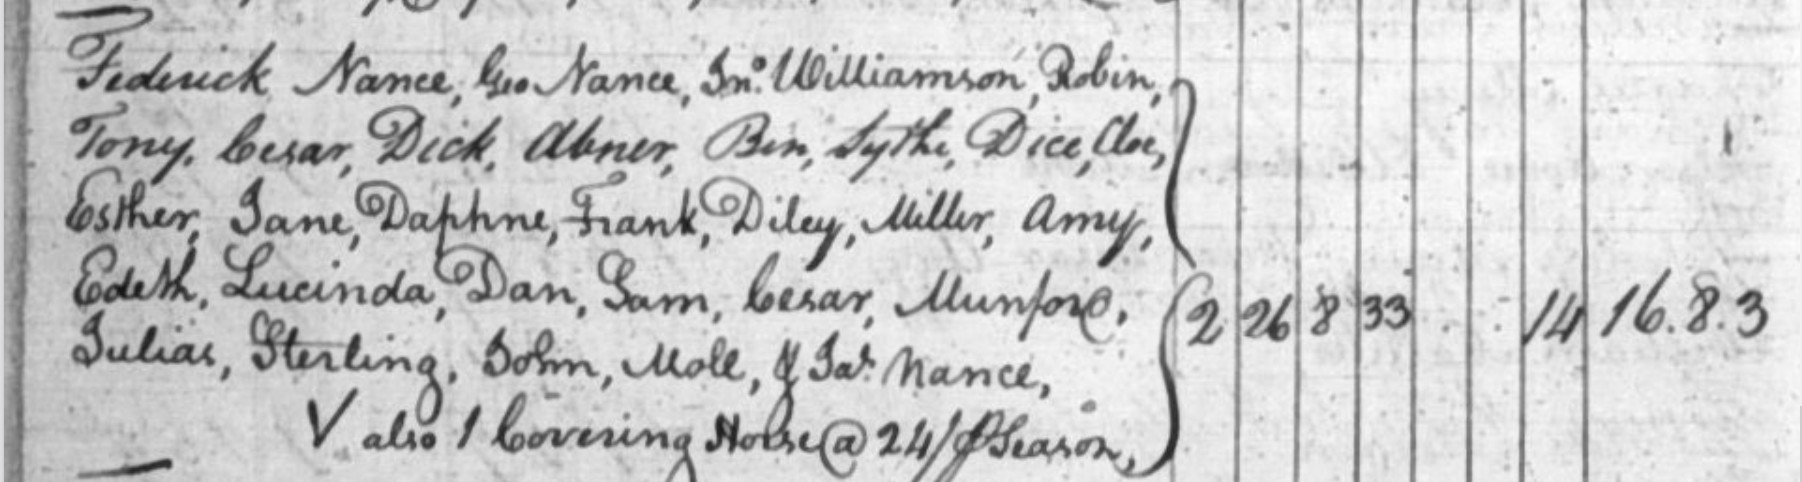 Federick Nance, Geo Nance, Jno. Williamson, Robin,
Tony, Cesar, Dick, Abner, Ben, Sythe, Dice, Cloe,
Esther, Jane, Daphne, Frank, Diley, Miller, Amy,
Edeth, Lucinda, Dan, Sam, Cesar, Munford, 2 26 8 33 14 16.8.3
Julias, Sterling, John, Moll, & Jas. Nance,
V also 1 Covering Horse @ 24/ ⅌ Season,